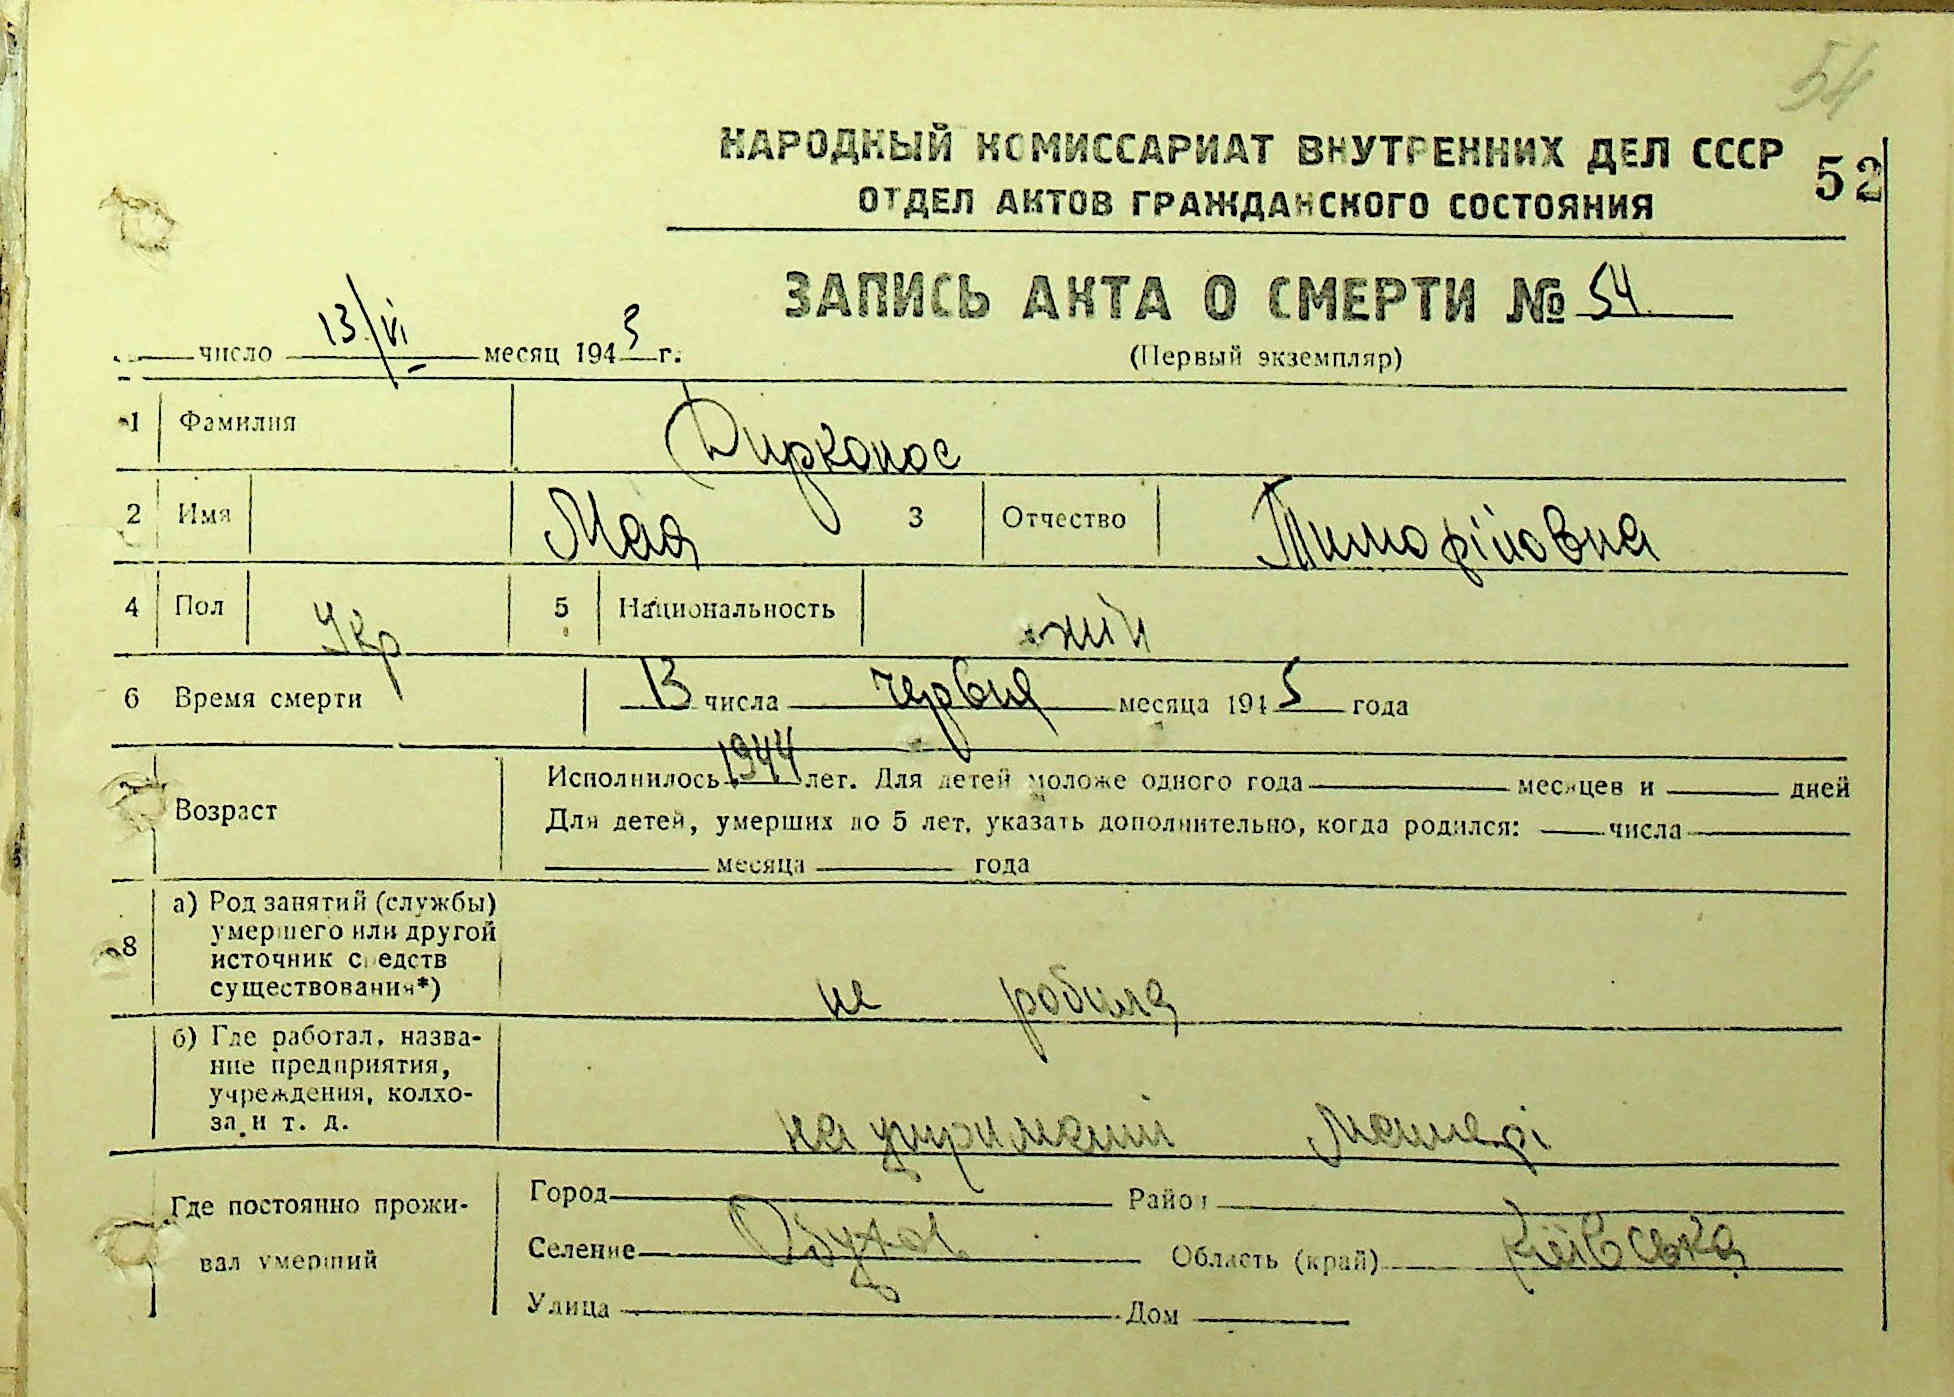 54
НАРОДНЫЙ КОМИССАРИАТ ВНУТРЕННИХ ДЕЛ СССР
52
ОТДЕЛ АКТОВ ГРАЖДАНСКОГО СОСТОЯНИЯ
ЗАПИСЬ АКТА О СМЕРТИ № 54
число 13/VI месяц 1945 г.
(Первый экземпляр)
1 Фамилия Дирконос
2 Имя Мая 3 Отчество Тимофіївна
4 Пол Укр 5 Национальность жін
6 Время смерти 13 числа червня месяца 1945 года
Возраст
Исполнилось 1944 лет. Для детей моложе одного года месяцев и дней
Для детей, умерших до 5 лет, указать дополнительно, когда родился: числа
месяца года
8 а) Род занятий (службы)
умершего или другой
источник средств
существования*)
не робила
б) Где работал, назва-
ние предприятия,
учреждения, колхо-
за и т. д.
на утриманні матері
Где постоянно прожи-
вал умерший
Город Район
Селение Обухов Область (край) Київська
Улица Дом